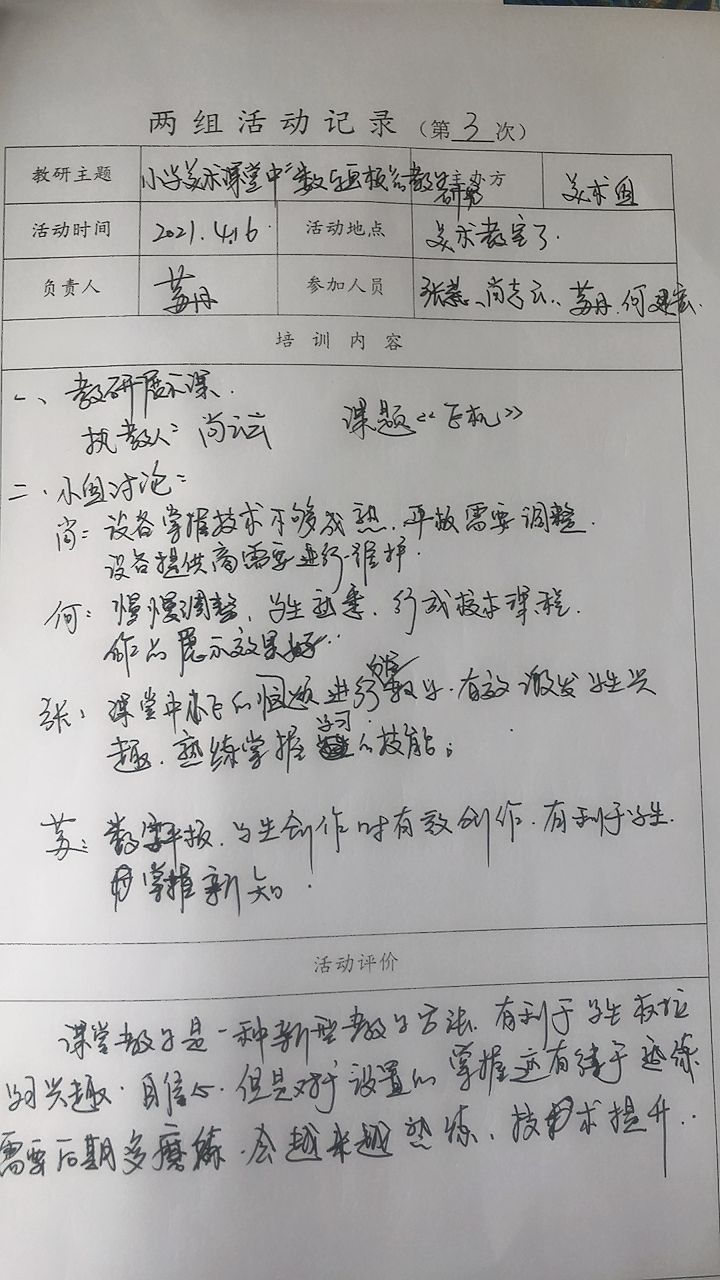 两组活动记录（第3次）
教研主题 小学美术课堂中“数字画板”的教学研究 主办方 美术组
活动时间 2021.4.16 活动地点 美术教室3.
负责人 苏丹 参加人员 张慧、尚志云、苏丹、何建宏
培训内容
一、教研展示课.
执教人：尚志云 课题《飞机》
二、小组讨论：
尚：设备掌握技术不够成熟，平板需要调整.
设备提供商需要进行维护.
何：慢慢调整，学生熟悉，形成技术课程.
作品展示效果好.
张：课堂中 的问题进行教学，有效激发学生兴
趣，熟练掌握学习的技能；
苏：数字平板，学生创作时有效创作，有利于学生
掌握新知.
活动评价
课堂教学是一种新型教学方法，有利于学生
学习兴趣，自信心，但是对于设置的掌握还有待于熟练
需要后期多磨练，会越来越熟练，技术提升..